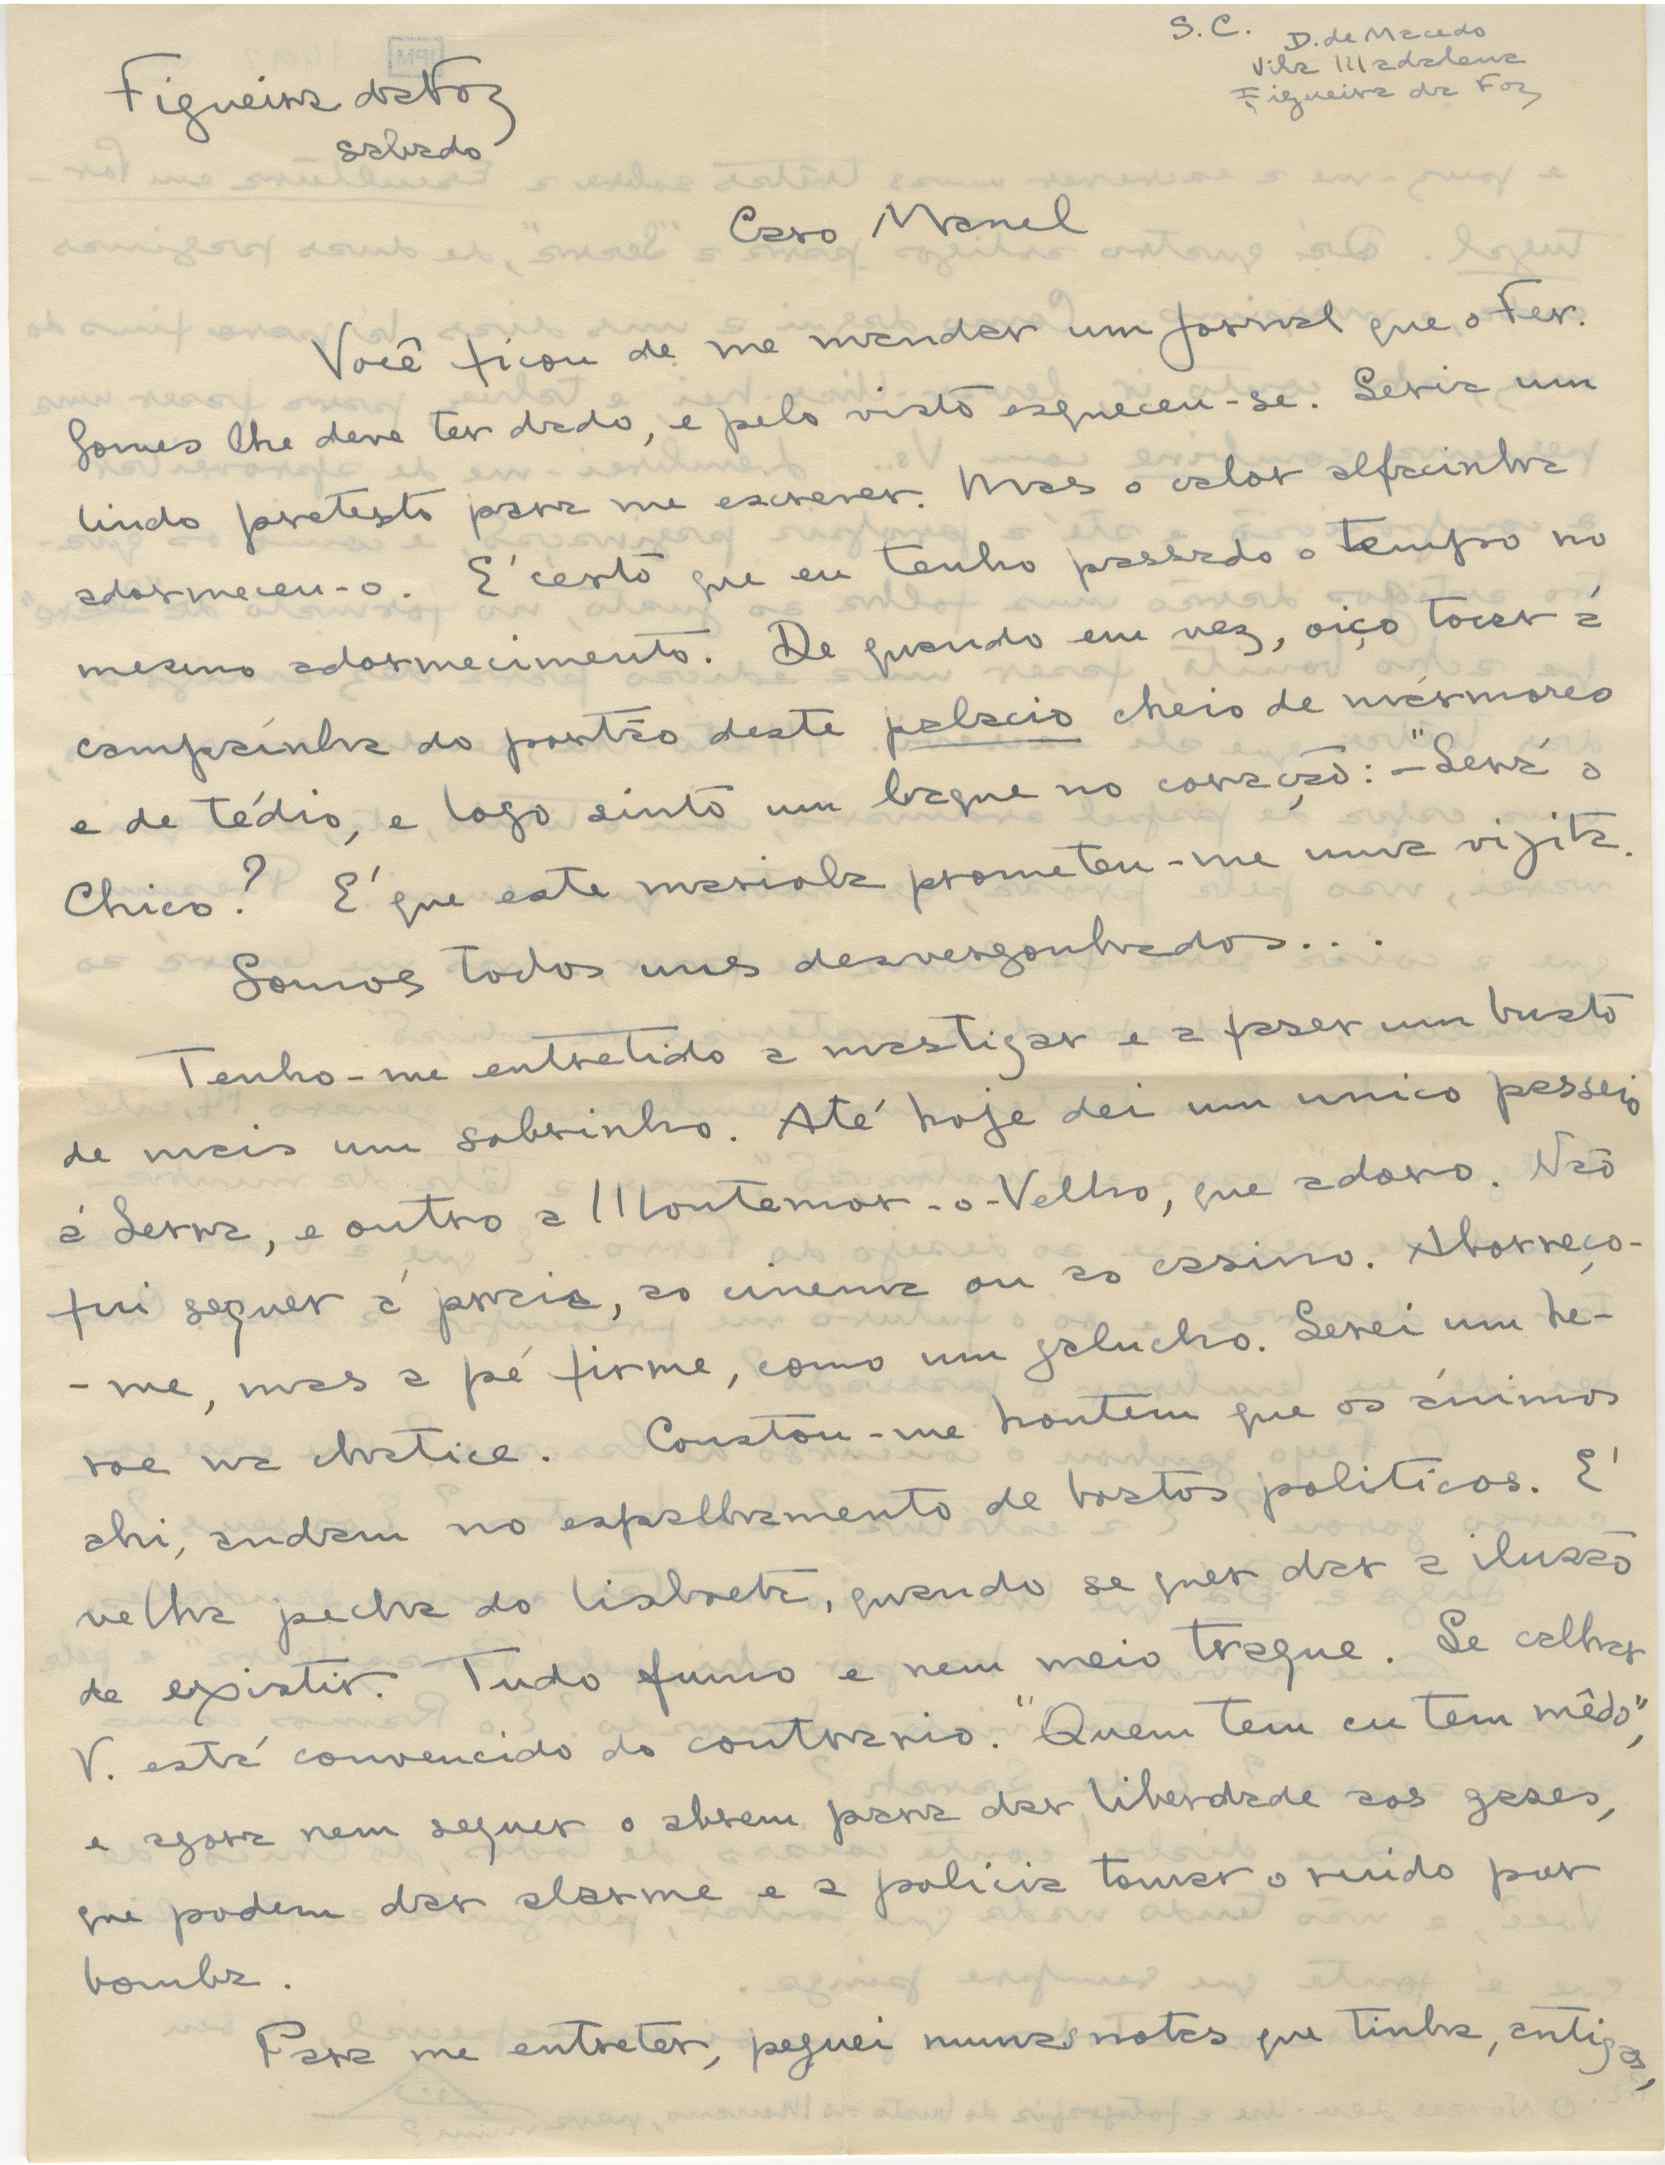 S. C. D. de Macedo
Vila Madalena
Figueira da Foz
Figueira da Foz
sabado
Caro Manel
Você ficou de me mandar um jornal que o Fer.
Gomes lhe deve ter dado, e pelo visto esqueceu-se. Seria um
lindo pretesto para me escrever. Mas o calor alfacinha
adormeceu-o. E' certo que eu tenho passado o tempo no
mesmo adormecimento. De quando em vez, oiço tocar á
campaínha do portão deste palacio cheio de mármores
e de tédio, e logo sinto um baque no coração: - "Será o
Chico? E' que este mariola prometeu-me uma vizita.
Somos todos uns desvergonhados...
Tenho-me entretido a mastigar e a fazer um busto
de mais um sobrinho. Até hoje dei um unico passeio
á Serra, e outro a Montemor-o-Velho, que adoro. Não
fui sequer á praia, ao cinema ou ao casino. Aborreço-
-me, mas a pé firme, como um galucho. Serei um he-
roe na chatice. Constou-me hontem que os ánimos
ahi, andam no espalhamento de boatos politicos. E'
velha pecha do lisboeta, quando se quer dar a ilusão
de existir. Tudo fumo e nem meio traque. Se calhar
V. está convencido do contrario. "Quem tem cu tem mêdo",
e agora nem sequer o abrem para dar liberdade aos gases,
que podem dar alarme e a policia tomar o ruido por
bomba.
Para me entreter, peguei numas notas que tinha, antigas,